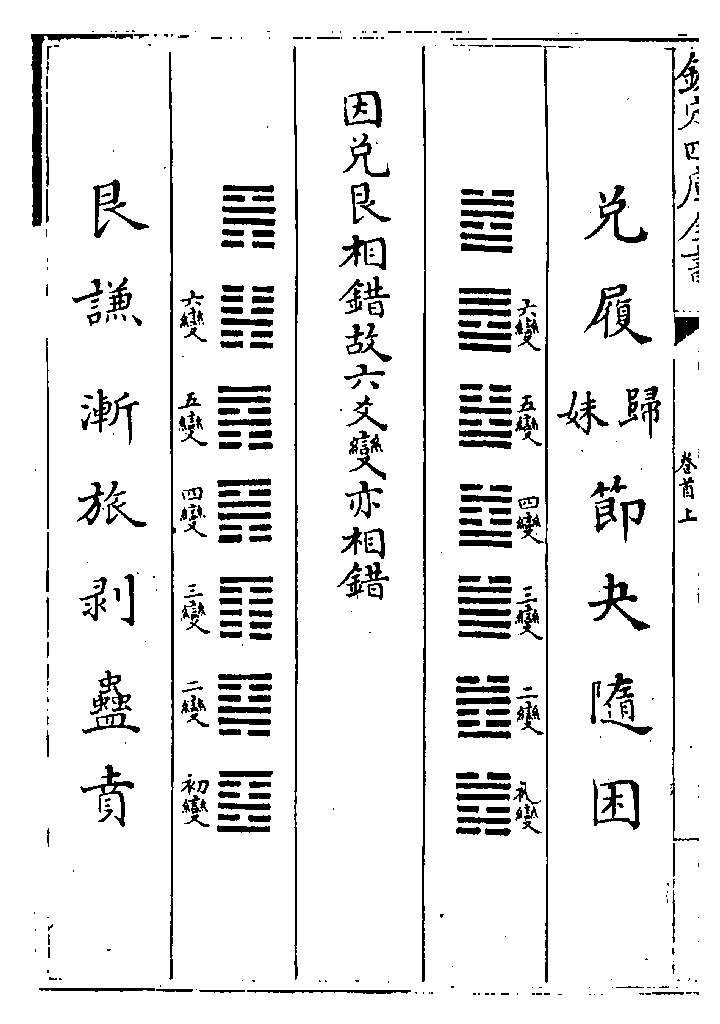 欽定四庫全書
卷首上
兌 履 歸妹 節 夬 隨 困
六變 五變 四變 三變 二變 初變
因兌艮相錯故六爻變亦相錯
六變 五變 四變 三變 二變 初變
艮 謙 漸 旅 剥 蠱 賁